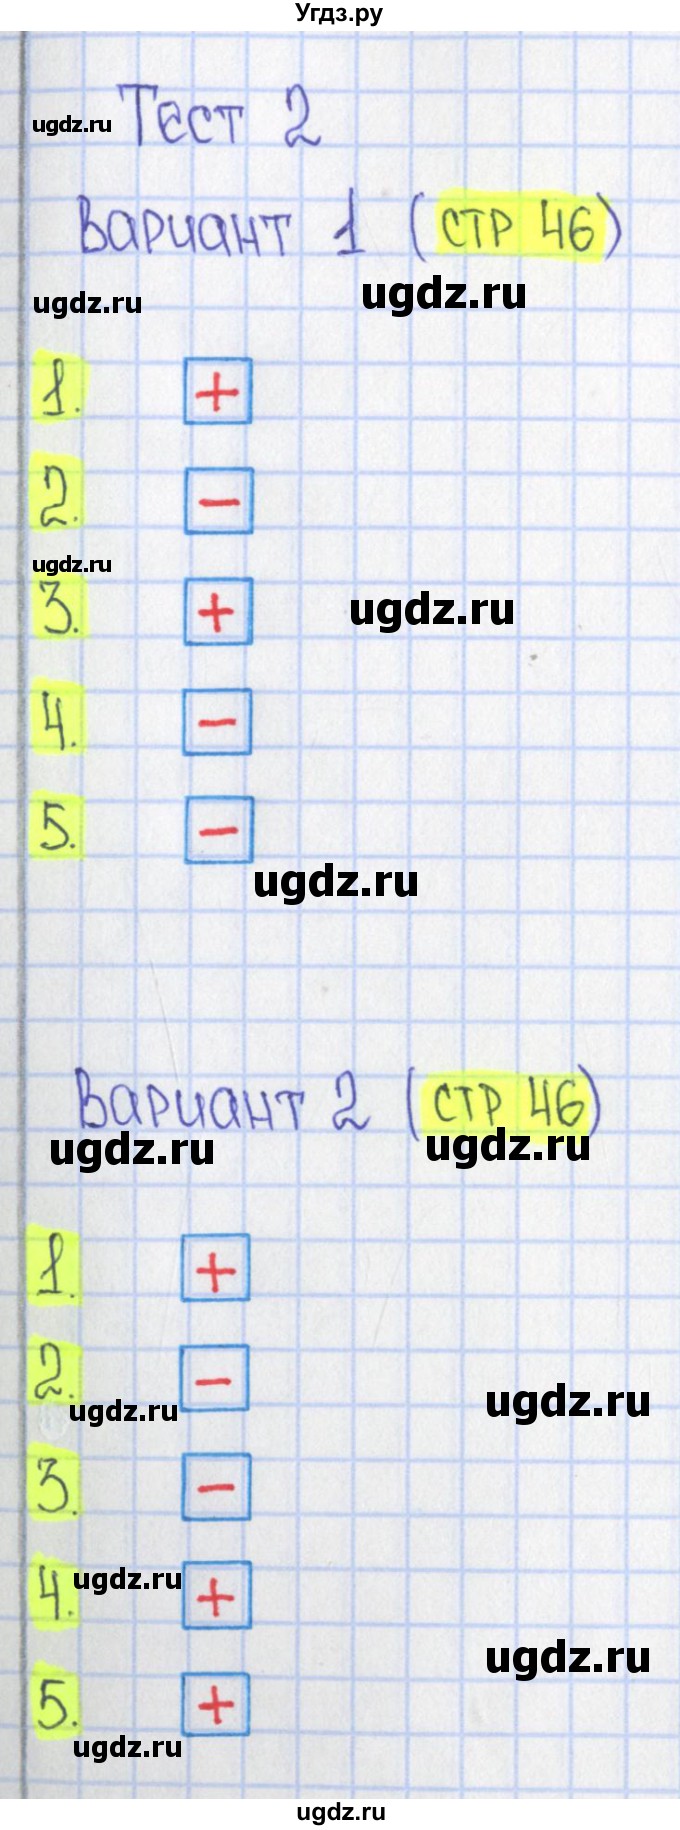 Угдз.ру
ugdz.ru
Тест 2
Вариант 1 (стр 46)
ugdz.ru
ugdz.ru
1. +
2. −
ugdz.ru
3. +
ugdz.ru
4. −
5. −
ugdz.ru
Вариант 2 (стр 46)
ugdz.ru
ugdz.ru
1. +
2. −
ugdz.ru
ugdz.ru
3. −
ugdz.ru
4. +
ugdz.ru
5. +
ugdz.ru
ugdz.ru